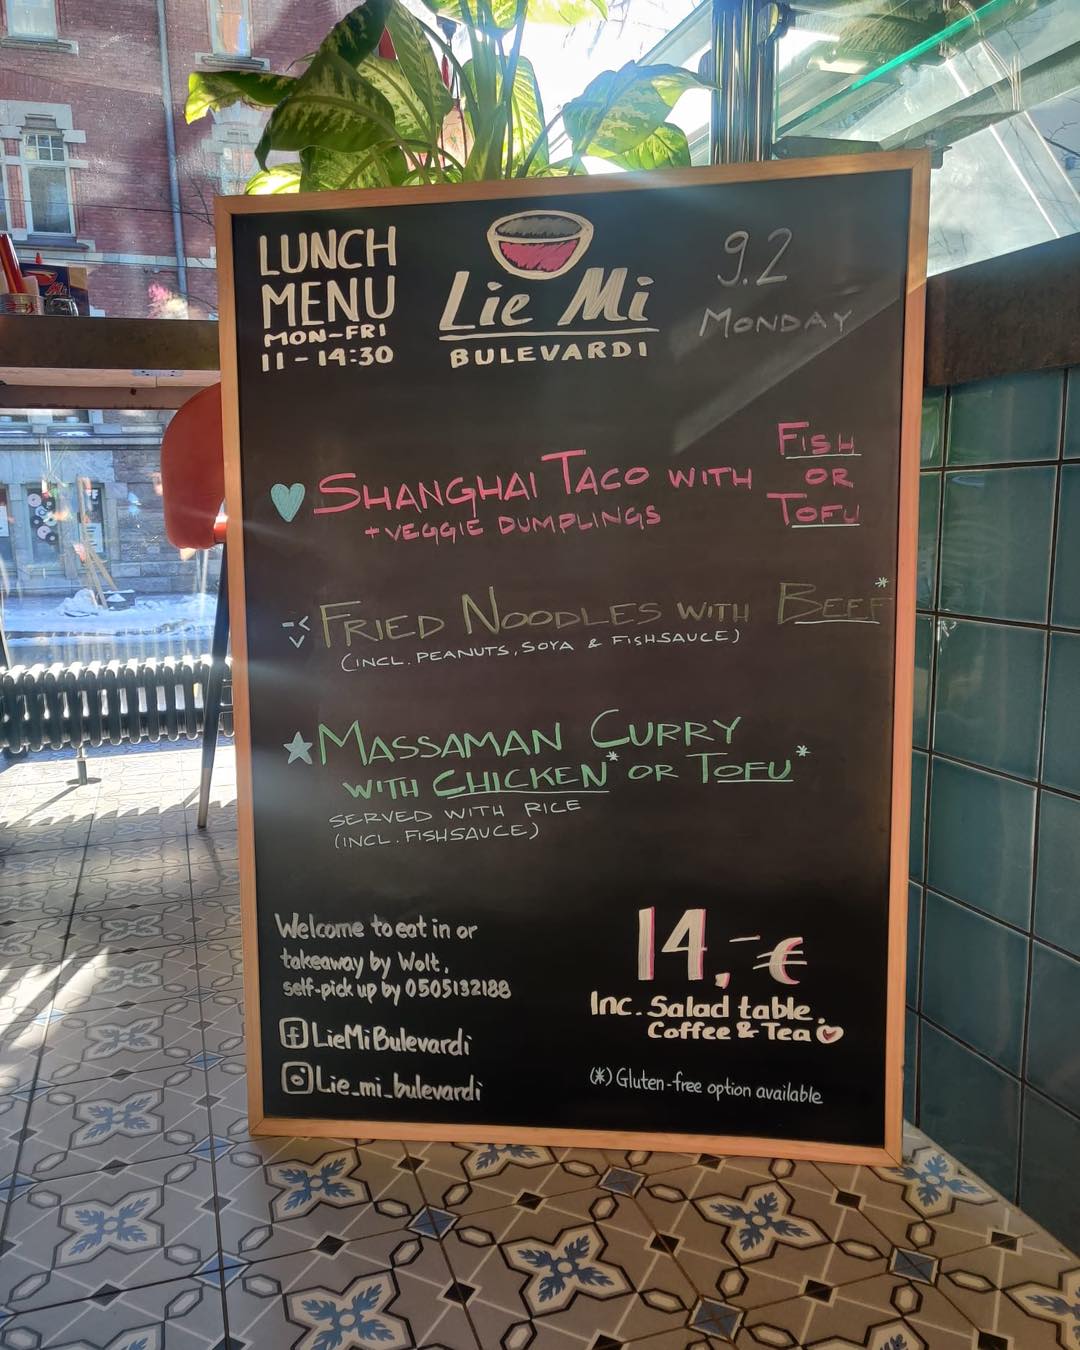 LUNCH
MENU
MON-FRI
11-14:30
Lie Mi
BULEVARDI
9.2
MONDAY
SHANGHAI TACO WITH FISH OR TOFU
+VEGGIE DUMPLINGS
FRIED NOODLES WITH BEEF*
(INCL. PEANUTS, SOYA & FISHSAUCE)
MASSAMAN CURRY
WITH CHICKEN* OR TOFU*
SERVED WITH RICE
(INCL. FISHSAUCE)
Welcome to eat in or
takeaway by Wolt,
self-pick up by 0505132188
LieMiBulevardi
Lie_mi_bulevardi
14,-€
Inc. Salad table.
Coffee & Tea
(*) Gluten-free option available